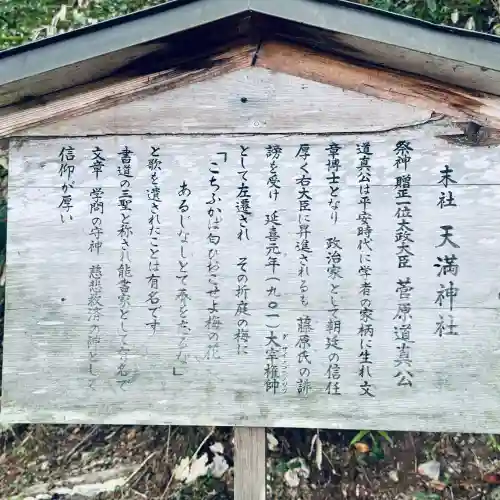 末社 天満神社
祭神 贈正一位太政大臣 菅原道真公
道真公は平安時代に学者の家柄に生れ文
章博士となり 政治家として朝廷の信任
厚く右大臣に昇進されるも 藤原氏の誹
謗を受け 延喜元年(九〇一)大宰権帥
として左遷され その折庭の梅に
「こちふかば匂ひおこせよ梅の花
あるじなしとて春をわするな」
と歌を遺されたことは有名です
書道の三聖と称され能書家として有名で
文章 学問の守神 慈悲救済の神として
信仰が厚い